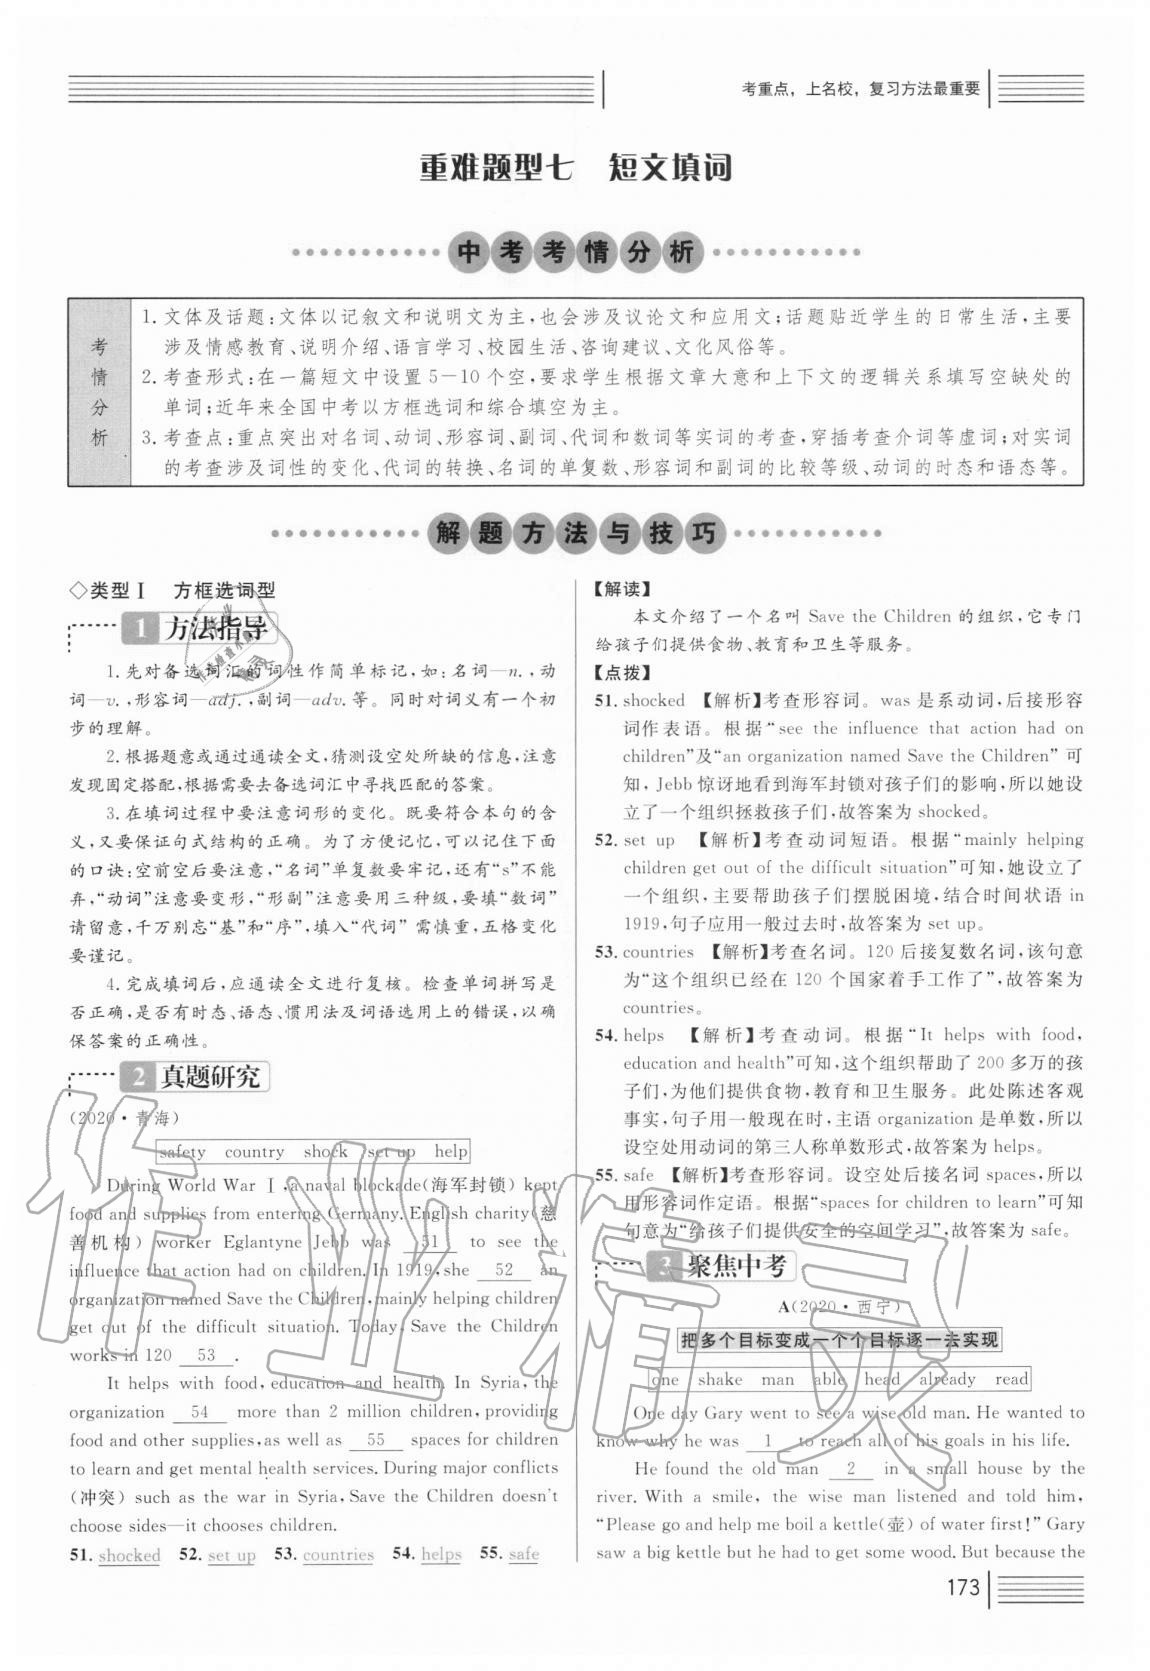 考重点，上名校，复习方法最重要
重难题型七　短文填词
中考考情分析
考情分析
1. 文体及话题:文体以记叙文和说明文为主,也会涉及议论文和应用文;话题贴近学生的日常生活,主要
涉及情感教育、说明介绍、语言学习、校园生活、咨询建议、文化风俗等。
2. 考查形式:在一篇短文中设置 5—10 个空,要求学生根据文章大意和上下文的逻辑关系填写空缺处的
单词;近年来全国中考以方框选词和综合填空为主。
3. 考查点:重点突出对名词、动词、形容词、副词、代词和数词等实词的考查,穿插考查介词等虚词;对实词
的考查涉及词性的变化、代词的转换、名词的单复数、形容词和副词的比较等级、动词的时态和语态等。
解题方法与技巧
◇类型Ⅰ　方框选词型
1 方法指导
1. 先对备选词汇的词性作简单标记,如:名词—n. ,动
词—v. ,形容词—adj. ,副词—adv. 等。同时对词义有一个初
步的理解。
2. 根据题意或通过通读全文,猜测设空处所缺的信息,注意
发现固定搭配,根据需要去备选词汇中寻找匹配的答案。
3. 在填词过程中要注意词形的变化。既要符合本句的含
义,又要保证句式结构的正确。为了方便记忆,可以记住下面
的口诀:空前空后要注意,“名词”单复数要牢记,还有“s”不能
弃,“动词”注意要变形,“形副”注意要用三种级,要填“数词”
请留意,千万别忘“基”和“序”,填入“代词”需慎重,五格变化
要谨记。
4. 完成填词后,应通读全文进行复核。检查单词拼写是
否正确,是否有时态、语态、惯用法及词语选用上的错误,以确
保答案的正确性。
2 真题研究
(2020·青海)
safety country shock set up help
During World War Ⅰ, a naval blockade(海军封锁) kept
food and supplies from entering Germany. English charity(慈
善机构) worker Eglantyne Jebb was 51 to see the
influence that action had on children. In 1919, she 52 an
organization named Save the Children, mainly helping children
get out of the difficult situation. Today, Save the Children
works in 120 53 .
It helps with food, education and health. In Syria, the
organization 54 more than 2 million children, providing
food and other supplies, as well as 55 spaces for children
to learn and get mental health services. During major conflicts
(冲突) such as the war in Syria, Save the Children doesn't
choose sides—it chooses children.
51. shocked 52. set up 53. countries 54. helps 55. safe
【解读】
本文介绍了一个名叫 Save the Children 的组织,它专门
给孩子们提供食物、教育和卫生等服务。
【点拨】
51. shocked 【解析】考查形容词。was 是系动词,后接形容
词作表语。根据“see the influence that action had on
children”及“an organization named Save the Children” 可
知, Jebb 惊讶地看到海军封锁对孩子们的影响,所以她设
立了一个组织拯救孩子们,故答案为 shocked。
52. set up 【解析】考查动词短语。根据“mainly helping
children get out of the difficult situation”可知,她设立了
一个组织,主要帮助孩子们摆脱困境,结合时间状语 in
1919,句子应用一般过去时,故答案为 set up。
53. countries 【解析】考查名词。120 后接复数名词,该句意
为“这个组织已经在 120 个国家着手工作了”,故答案为
countries。
54. helps 【解析】考查动词。根据“It helps with food,
education and health”可知,这个组织帮助了 200 多万的孩
子们,为他们提供食物,教育和卫生服务。此处陈述客观
事实,句子用一般现在时,主语 organization 是单数,所以
设空处用动词的第三人称单数形式,故答案为 helps。
55. safe 【解析】考查形容词。设空处后接名词 spaces,所以
用形容词作定语。根据“spaces for children to learn”可知
句意为“给孩子们提供安全的空间学习”,故答案为 safe。
3 聚焦中考
A(2020·西宁)
把多个目标变成一个个目标逐一去实现
one shake man able head already read
One day Gary went to see a wise old man. He wanted to
know why he was 1 to reach all of his goals in his life.
He found the old man 2 in a small house by the
river. With a smile, the wise man listened and told him,
“Please go and help me boil a kettle(壶) of water first!” Gary
saw a big kettle but he had to get some wood. But because the
173
作业精灵